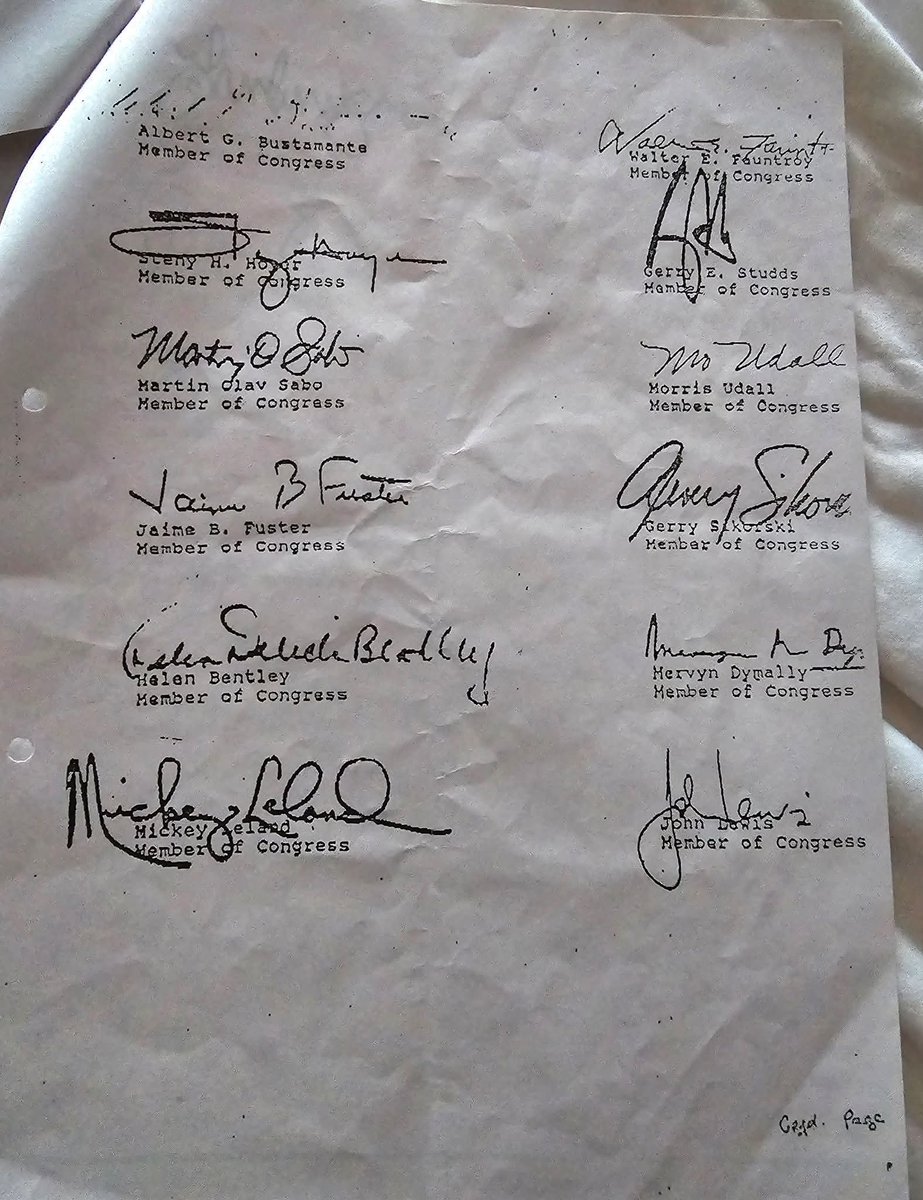 Albert G. Bustamante
Member of Congress
Walter E. Fauntroy
Member of Congress
Steny H. Hoyer
Member of Congress
Gerry E. Studds
Member of Congress
Martin O Sabo
Martin Olav Sabo
Member of Congress
Mo Udall
Morris Udall
Member of Congress
Jaime B Fuster
Jaime B. Fuster
Member of Congress
Gerry Sikorski
Gerry Sikorski
Member of Congress
Helen Delich Bentley
Helen Bentley
Member of Congress
Mervyn M Dy
Mervyn Dymally
Member of Congress
Mickey Leland
Mickey Leland
Member of Congress
John Lewis
John Lewis
Member of Congress
Page